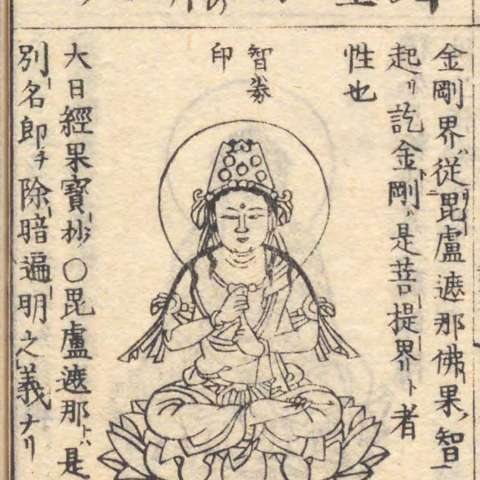 金剛界ハ從毘盧遮那佛果ノ智
起リ訖金剛ハ是菩提界ト者
性也
智劵
印
大日經果寶抄〇毘盧遮那トハ是
別名即チ除暗遍明之義ナリ